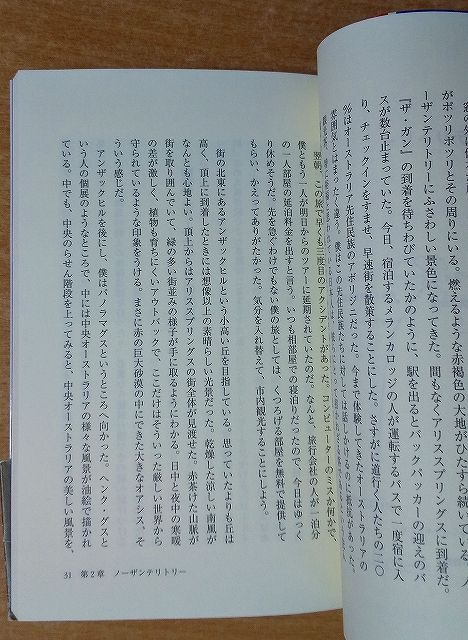 がポツリポツリとその周りにいる。燃えるような赤褐色の大地がひたすら続いている
ーザンテリトリーにふさわしい景色になってきた。間もなくアリススプリングスに到着だ。
『ザ・ガン』の到着を待ちわびていたかのように、駅を出るとバックパッカーの迎えのバ
スが数台止まっていた。今日、宿泊するメランカロッジの人が運転するバスで一度宿に入
り、チェックインをすませ、早速街を散策することにした。さすがに道行く人たちの二〇
%はオーストラリア先住民族のアボリジニだった。今まで体験してきたオーストラリアの
雰囲気とはまったく違う。僕はこの先住民族たちに対しては話しかけるのに抵抗があった。
翌朝、この旅で早くも三度目のアクシデントがあった。コンピューターのミスか何かで、
僕ともう一人が明日からのツアーに延期されていたのだ。なんと、旅行会社の人が一泊分
の一人部屋の延泊料金を出すと言う。いつも相部屋での寝泊りだったので、今日はゆっく
り休めそうだ。先を急ぐわけでもない僕の旅としては、くつろげる部屋を無料で提供して
もらい、かえってありがたかった。気分を入れ替えて、市内観光をすることにしよう。
街の北東にあるアンザックヒルという小高い丘を目指している。思っていたよりも丘は
高く、頂上に到着したときには想像以上の素晴らしい光景だった。乾燥した涼しい南風が
なんとも心地よい。頂上からはアリススプリングスの街全体が見渡せた。赤茶けた山脈が
街を取り囲んでいて、緑の多い街並みの様子が手に取るようにわかる。日中と夜中の寒暖
の差が激しく、植物も育ちにくいアウトバックで、ここだけはそういった厳しい世界から
守られているような印象をうける。まさに赤の巨大砂漠の中にできた大きなオアシス。そ
ういう感じだ。
アンザックヒルを後にし、僕はパノラマグスというところへ向かった。ヘンク・グスと
いう人の個展のようなところで、中には中央オーストラリアの様々な風景が油絵で描かれ
ている。中でも、中央のらせん階段を上ってみると、中央オーストラリアの美しい風景を、
31 第2章 ノーザンテリトリー